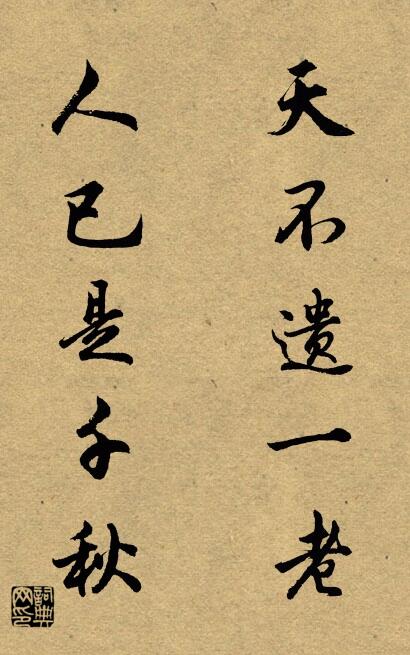 天不遗一老
人已是千秋
詞典网印